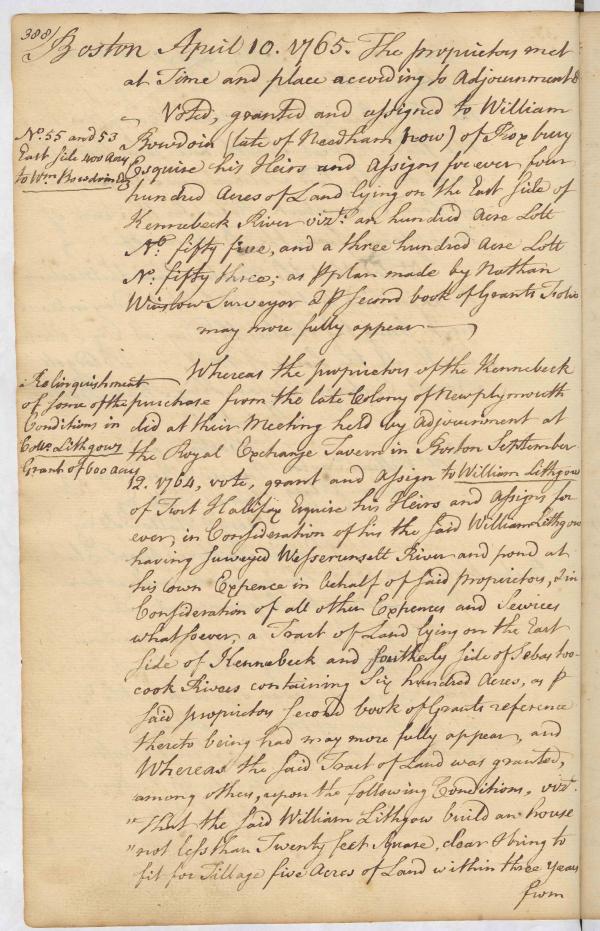 388/
Boston April 10. 1765. The proprietors met
at Time and place according to Adjournment &
Voted, granted and assigned to William
No. 55 and 53
East side 400 Acres
to Wm. Bowdoin Esq
Bowdoin (late of Needham now) of Roxbury
Esquire his Heirs and Assigns forever four
hundred Acres of Land lying on the East Side of
Kennebeck River vizt. an hundred Acre Lott
No. fifty five, and a three hundred Acre Lott
No. fifty three; as P plan made by Nathan
Winslow Surveyor & P second book of Grants Folio
may more fully appear
Relinquishment
of some of the
Conditions in
Colo. Lithgows
Grant of 600 acres
Whereas the proprietors of the Kennebeck
purchase from the late Colony of Newplymouth
did at their Meeting held by Adjournment at
the Royal Exchange Tavern in Boston September
12. 1764, vote, grant and assign to William Lithgow
of Fort Hallifax Esquire his Heirs and Assigns for
ever, in Consideration of his the said William Lithgow
having surveyed Wesserunsett River and pond at
his own Expence in behalf of said proprietors, & in
Consideration of all other Expences and Services
whatsoever, a Tract of Land lying on the East
Side of Kennebeck and southerly side of Sebastoo-
cook Rivers containing Six hundred Acres, as P
said proprietors second book of Grants reference
thereto being had may more fully appear, and
Whereas the said Tract of Land was granted,
among others, upon the following Conditions, vizt.
"That the said William Lithgow build an house
"not less than Twenty feet square, clear & bring to
fit for Tillage five Acres of Land within three Years
from